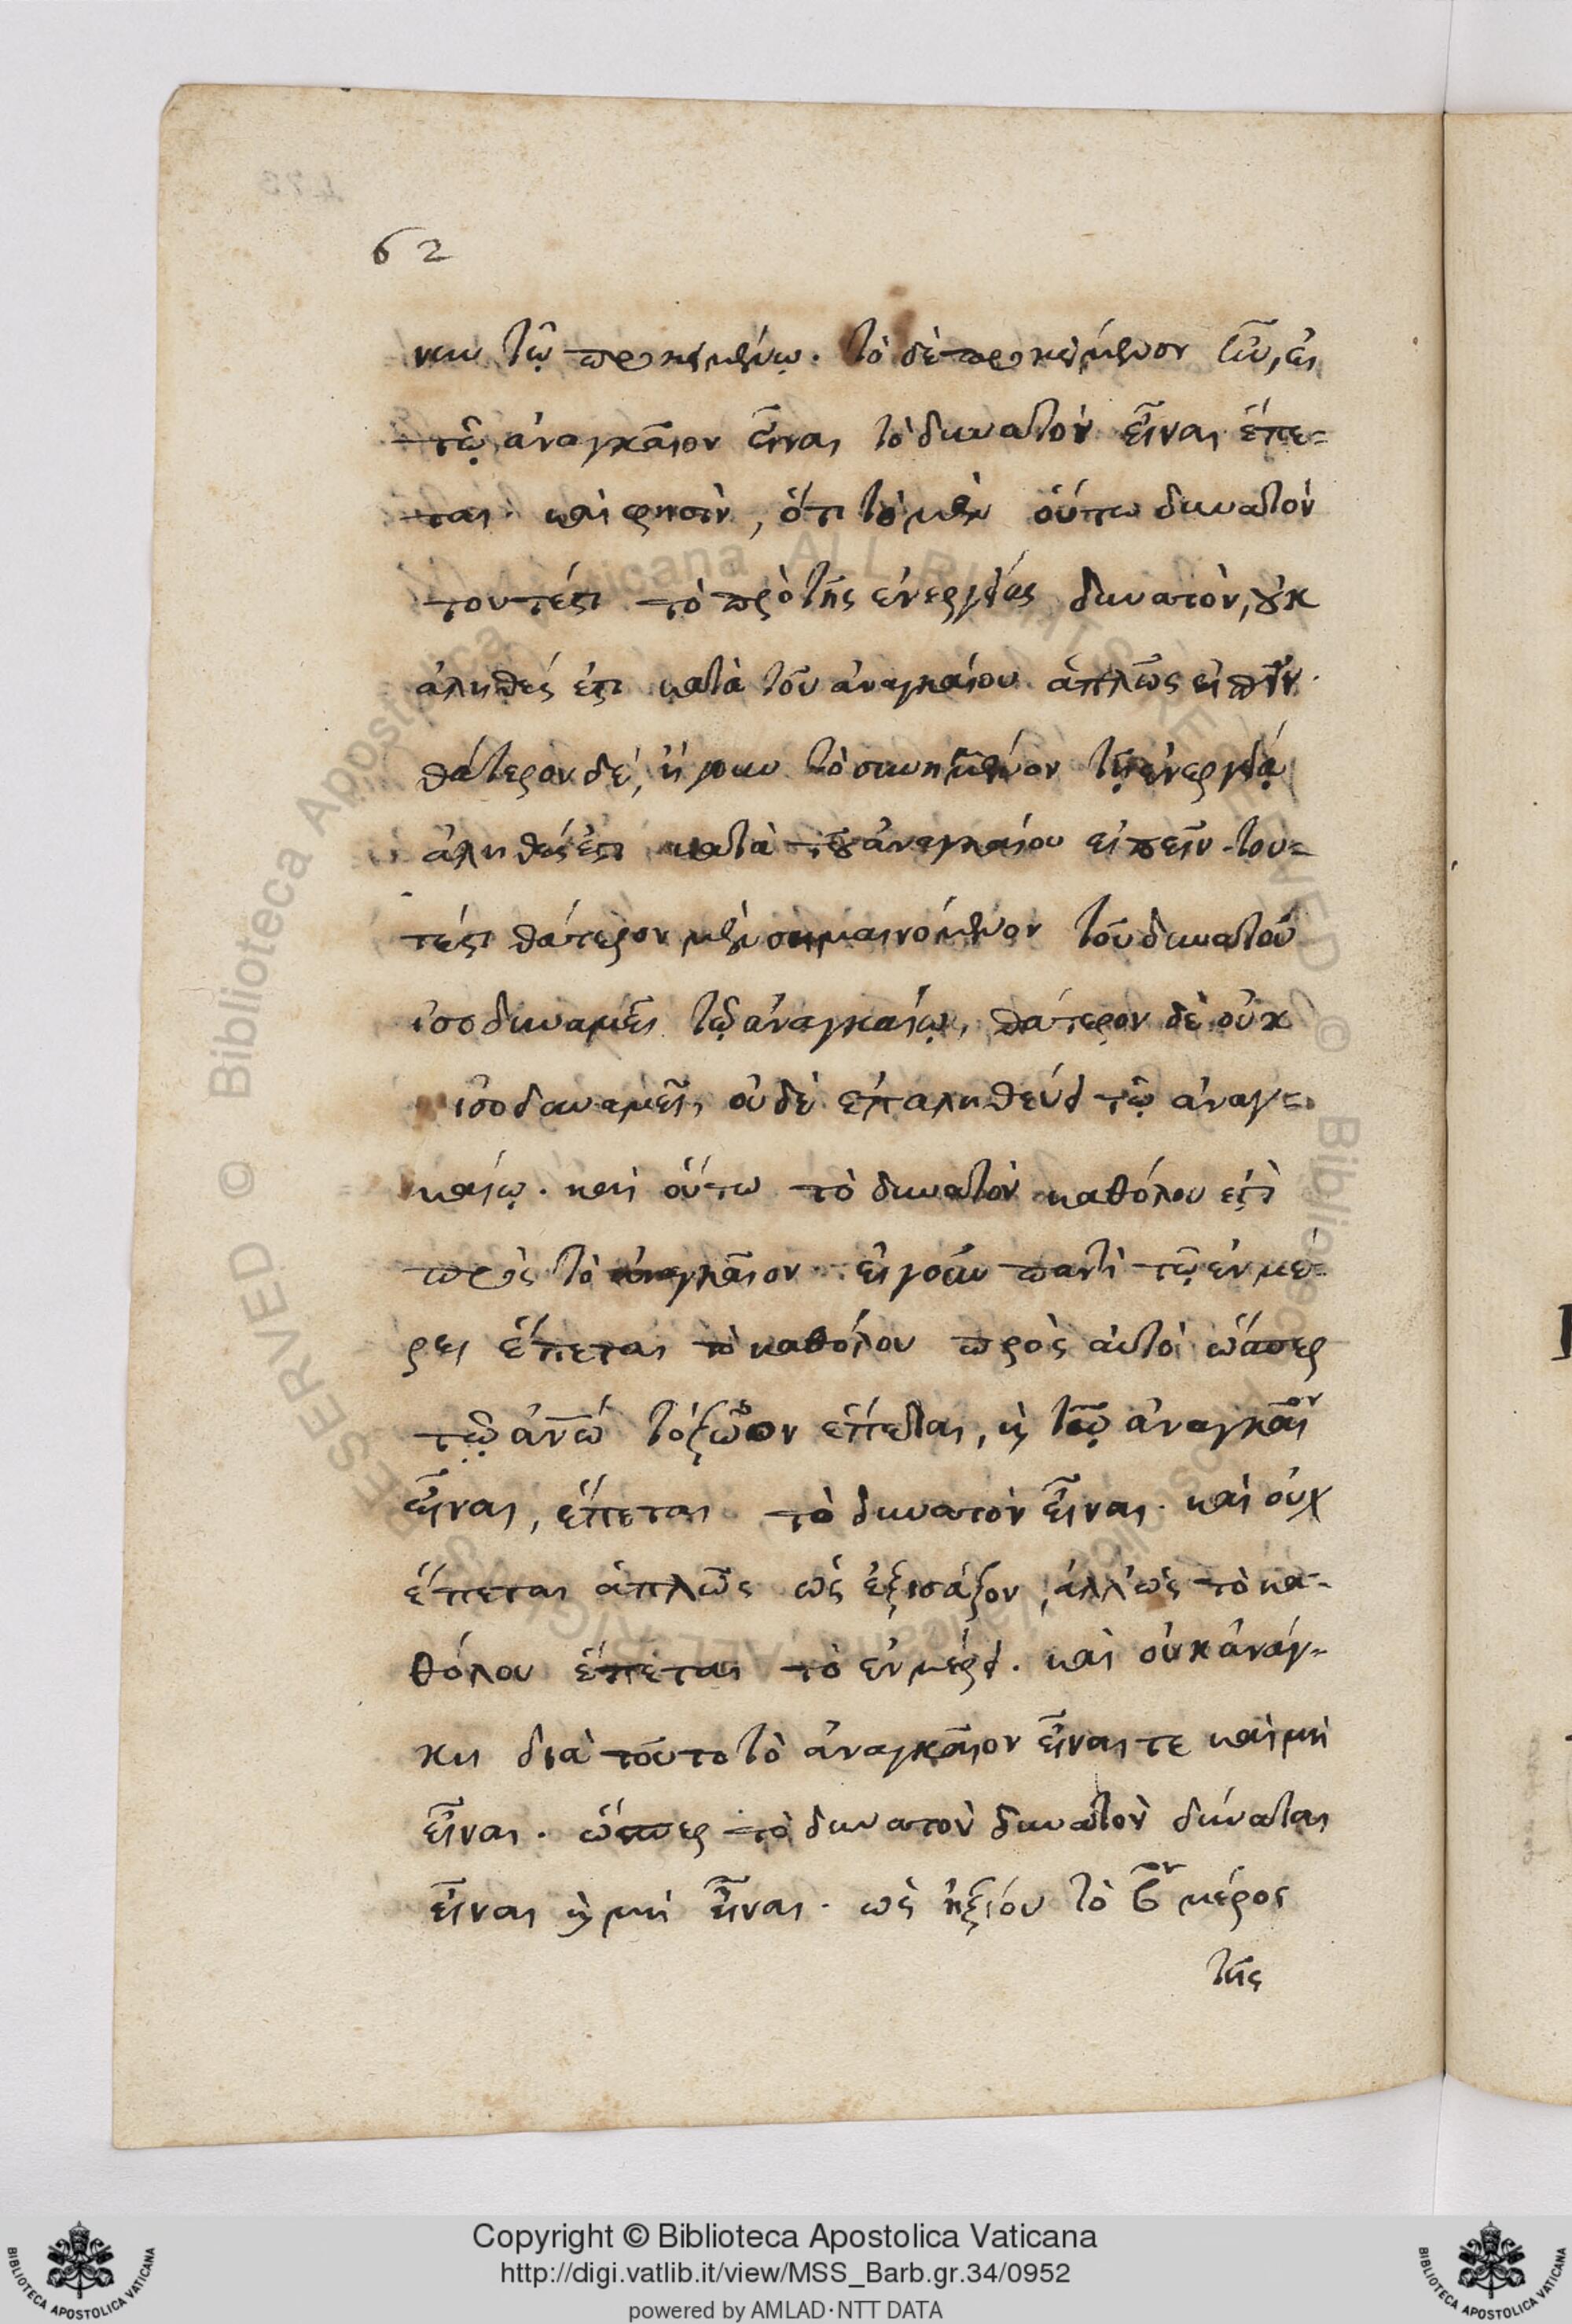 62
νυν τῷ προκειμένῳ. τὸ δὲ προκείμενον ἦν, εἰ
τῷ ἀναγκαῖον εἶναι τὸ δυνατὸν εἶναι ἕπε=
ται. καὶ φησὶν, ὅτι τὸ μὲν οὕτω δυνατὸν
τουτέστι τὸ πρὸ τῆς ἐνεργείας δυνατὸν, οὐκ
ἀληθές ἐστι κατὰ τοῦ ἀναγκαίου ἁπλῶς εἰπεῖν.
θάτερον δέ, ἤγουν τὸ συνημμένον τῇ ἐνεργείᾳ
ἀληθές ἐστι κατὰ τοῦ ἀναγκαίου εἰπεῖν. του=
τέστι θάτερον μὲν σημαινόμενον τοῦ δυνατοῦ
ἰσοδυναμεῖ τῷ ἀναγκαίῳ, θάτερον δὲ οὐκ
ἰσοδυναμεῖ, οὐδὲ ἐπαληθεύει τῷ ἀναγ=
καίῳ. καὶ οὕτω τὸ δυνατὸν καθόλου ἐστὶ
πρὸς τὸ ἀναγκαῖον. εἰ γοῦν παντὶ τῷ ἐν μέ=
ρει ἕπεται τὸ καθόλου πρὸς αὐτὸ ὥσπερ
τῷ ἀνῶ τὸ ζῶον ἕπεται, καὶ τῷ ἀναγκαῖον
εἶναι, ἕπεται τὸ δυνατὸν εἶναι. καὶ οὐχ
ἕπεται ἁπλῶς ὡς ἐξισάζον, ἀλλ' ὡς τὸ κα=
θόλου ἕπεται τὸ ἐν μέρει. καὶ οὐκ ἀνάγ=
κη διὰ τοῦτο τὸ ἀναγκαῖον εἶναι τε καὶ μὴ
εἶναι. ὥσπερ τὸ δυνατὸν δυνατὸν δύναται
εἶναι καὶ μὴ εἶναι. ὡς ἠξίου τὸ βον μέρος
τῆς
Copyright © Biblioteca Apostolica Vaticana
http://digi.vatlib.it/view/MSS_Barb.gr.34/0952
powered by AMLAD·NTT DATA